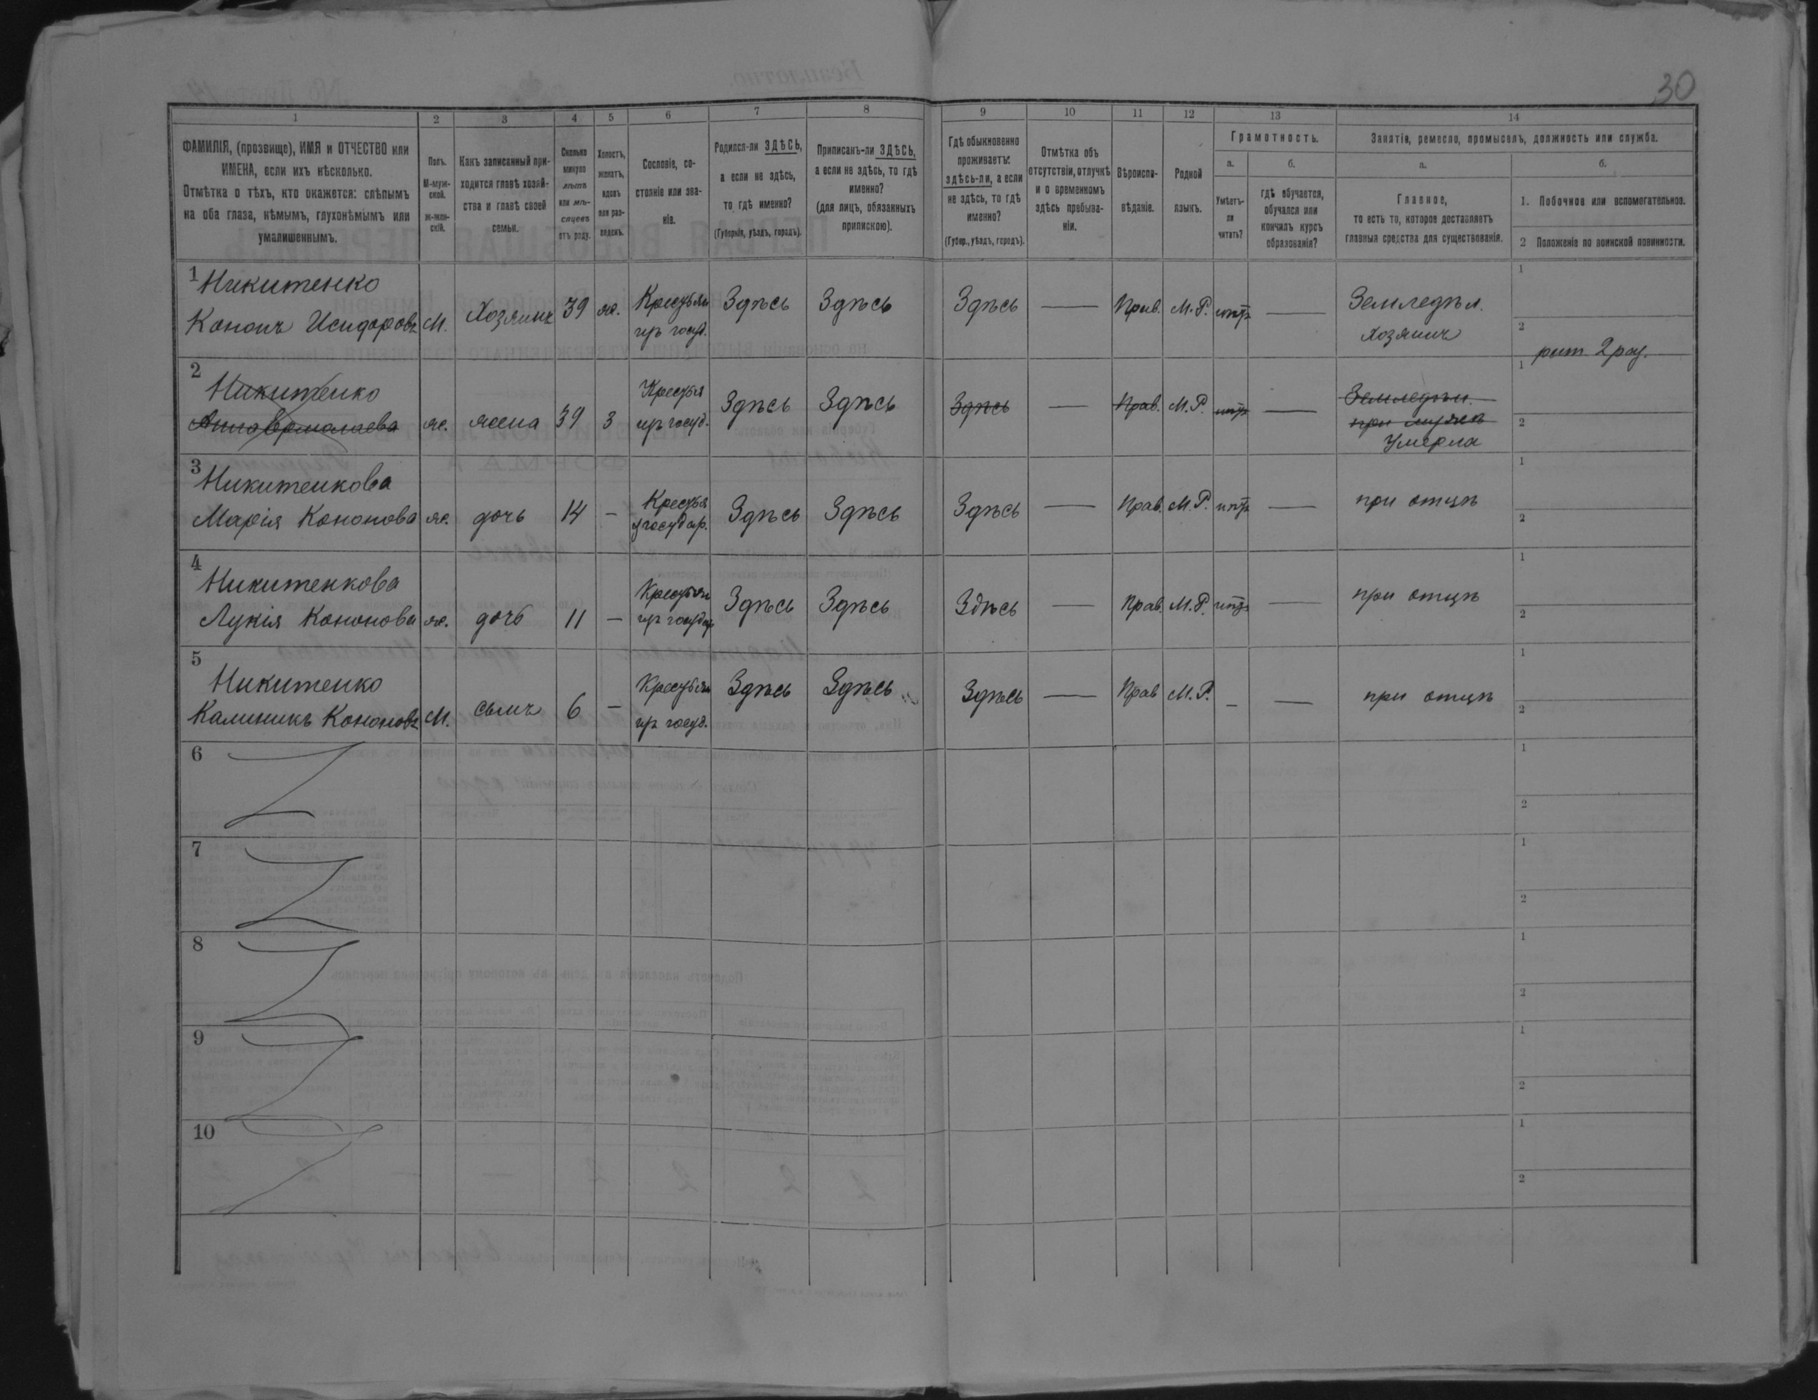 30
1 2 3 4 5 6 7 8 9 10 11 12 13 14
ФАМИЛІЯ, (прозвище), ИМЯ и ОТЧЕСТВО или
ИМЕНА, если ихъ нѣсколько.
Отмѣтка о тѣхъ, кто окажется: слѣпымъ
на оба глаза, нѣмымъ, глухонѣмымъ или
умалишеннымъ.
Полъ.
М-муж-
ской.
Ж-жен-
скій.
Какъ записанный при-
ходится главѣ хозяй-
ства и главѣ своей
семьи.
Сколько
минуло
лѣтъ
или мѣ-
сяцевъ
отъ роду.
Холостъ,
женатъ,
вдовъ
или раз-
веденъ.
Сословіе, со-
стояніе или зва-
ніе.
Родился-ли ЗДѢСЬ,
а если не здѣсь,
то гдѣ именно?
(Губернія, уѣздъ, городъ).
Приписанъ-ли ЗДѢСЬ,
а если не здѣсь, то гдѣ
именно?
(для лицъ, обязанныхъ
припискою).
Гдѣ обыкновенно
проживаетъ:
здѣсь-ли, а если
не здѣсь, то гдѣ
именно?
(Губер., уѣздъ, городъ).
Отмѣтка объ
отсутствіи, отлучкѣ
и о временномъ
здѣсь пребыва-
ніи.
Вѣроиспо-
вѣданіе.
Родной
языкъ.
Грамотность.
а. б.
Умѣетъ-
ли
читать?
гдѣ обучается,
обучался или
кончилъ курсъ
образованія?
Занятіе, ремесло, промыселъ, должность или служба.
а. б.
Главное,
то есть то, которое доставляетъ
главныя средства для существованія.
1. Побочное или вспомогательное.
2 Положеніе по воинской повинности.
1 Никитенко
Кононъ Исидоровъ М. Хозяинъ 39 ж. Крестьян. Здѣсь Здѣсь Здѣсь — Прав. М.Р. — Земледѣл.
изъ госуд. Хозяинъ
1
2 рат 2 раз.
2 Никитенко
Анна Ермолаева ж. жена 39 3 Крестьян Здѣсь Здѣсь Здѣсь — Прав. М.Р. — Земледѣл.
изъ госуд. при мужѣ
Умерла
1
2
3 Никитенкова
Марія Кононова ж. дочь 14 — Крестьян Здѣсь Здѣсь Здѣсь — Прав. М.Р. — при отцѣ
государ.
1
2
4 Никитенкова
Лукія Кононова ж. дочь 11 — Крестьян Здѣсь Здѣсь Здѣсь — Прав. М.Р. — при отцѣ
изъ государ
1
2
5 Никитенко
Калиникъ Кононовъ М. сынъ 6 — Крестьян Здѣсь Здѣсь Здѣсь — Прав М.Р. — — при отцѣ
изъ госуд.
1
2
6
1
2
7
1
2
8
1
2
9
1
2
10
1
2